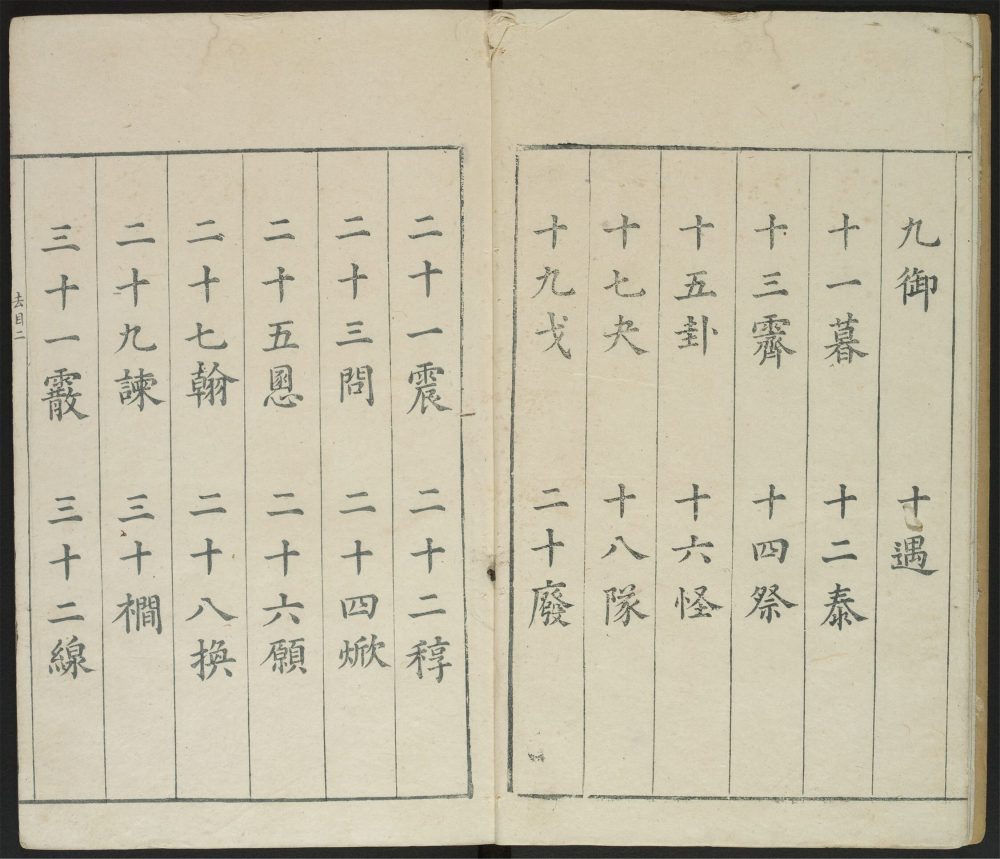 九御　十遇
十一暮　十二泰
十三霽　十四祭
十五卦　十六怪
十七夬　十八隊
十九戈　二十廢
二十一震　二十二稕
二十三問　二十四焮
二十五慁　二十六願
二十七翰　二十八換
二十九諫　三十橺
三十一霰　三十二線
去目二